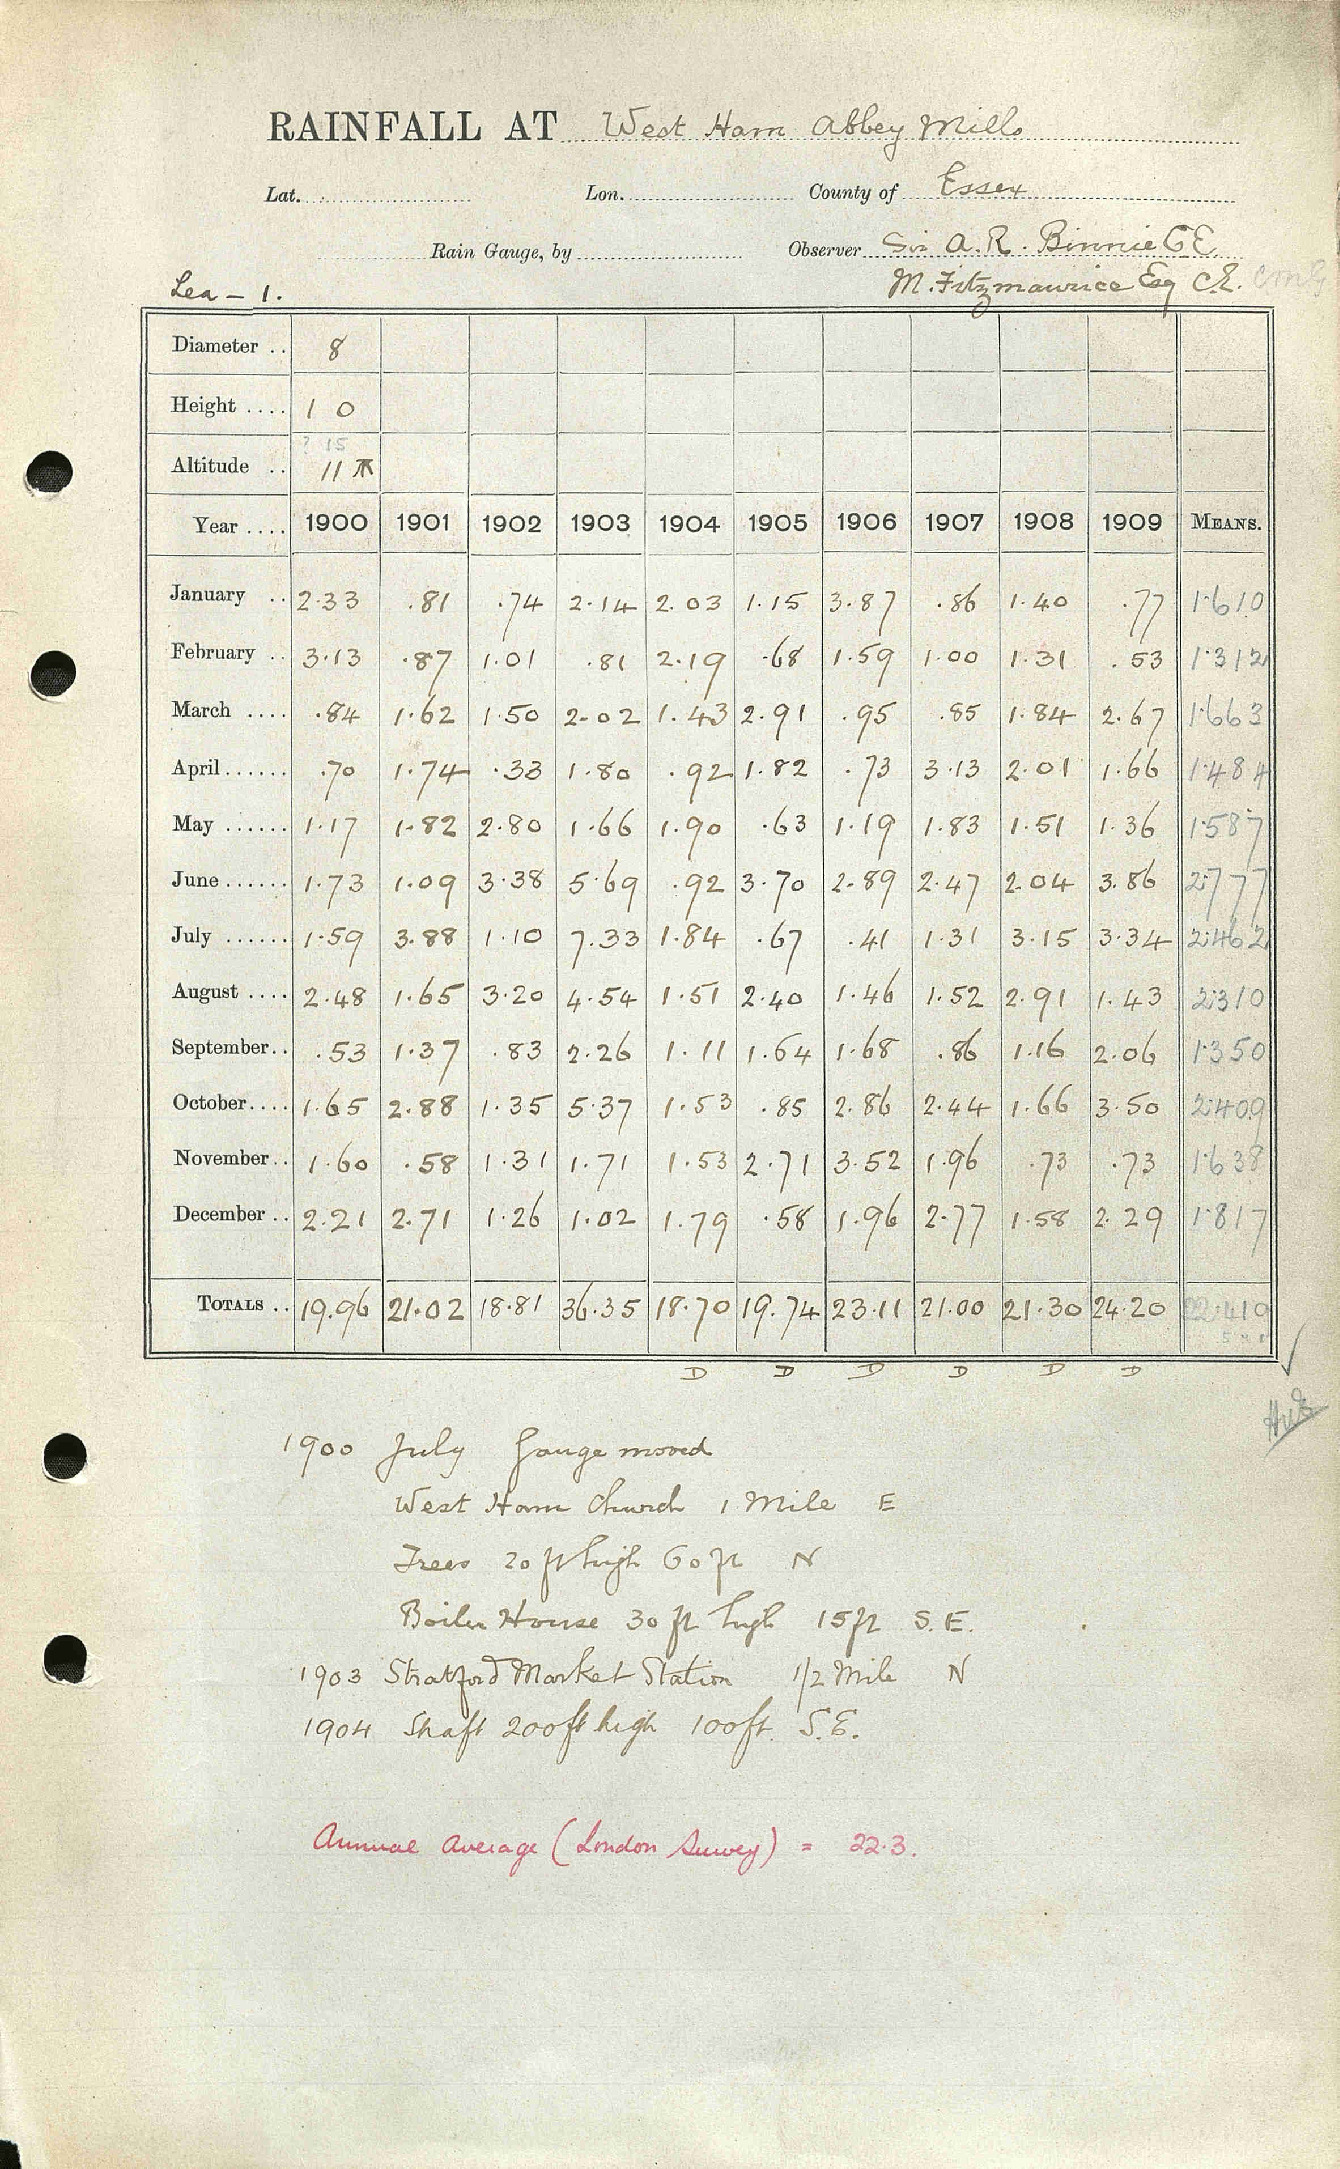 RAINFALL AT West Ham Abbey Mills
Lat. Lon. County of Essex
Rain Gauge, by Observer Sir A. R. Binnie C E
Lea - 1. M. Fitzmaurice Esq C.E.
Diameter .. 8
Height .... 1 0
? 15
Altitude .. 11
Year .... 1900 1901 1902 1903 1904 1905 1906 1907 1908 1909 MEANS.
January .. 2.33 .81 .74 2.14 2.03 1.15 3.87 .86 1.40 .77 1.610
February .. 3.13 .87 1.01 .81 2.19 .68 1.59 1.00 1.31 .53 1.312
March .... .84 1.62 1.50 2.02 1.43 2.91 .95 .85 1.84 2.67 1.663
April...... .70 1.74 .33 1.80 .92 1.82 .73 3.13 2.01 1.66 1.484
May ...... 1.17 1.82 2.80 1.66 1.90 .63 1.19 1.83 1.51 1.36 1.587
June...... 1.73 1.09 3.38 5.69 .92 3.70 2.89 2.47 2.04 3.86 2.777
July ...... 1.59 3.88 1.10 7.33 1.84 .67 .41 1.31 3.15 3.34 2.462
August .... 2.48 1.65 3.20 4.54 1.51 2.40 1.46 1.52 2.91 1.43 2.310
September.. .53 1.37 .83 2.26 1.11 1.64 1.68 .86 1.16 2.06 1.350
October.... 1.65 2.88 1.35 5.37 1.53 .85 2.86 2.44 1.66 3.50 2.409
November.. 1.60 .58 1.31 1.71 1.53 2.71 3.52 1.96 .73 .73 1.638
December .. 2.21 2.71 1.26 1.02 1.79 .58 1.96 2.77 1.58 2.29 1.817
TOTALS .. 19.96 21.02 18.81 36.35 18.70 19.74 23.11 21.00 21.30 24.20 22.419
D D D D D D
1900 July Gauge moved
West Ham Church 1 Mile E
Trees 20 ft high 60 ft N
Boiler House 30 ft high 15 ft S.E.
1903 Stratford Market Station 1/2 Mile N
1904 Shaft 200ft high 100ft. S.E.
Annual average (London Survey) = 22.3.